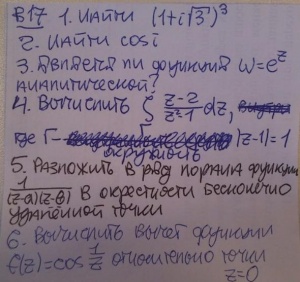 В17 1. Найти (1+i√3)³
2. Найти cos i
3. Является ли функция w=e^z
аналитической?
4. Вычислить ∫ z-2/z²-1 dz,
где Γ - окружность |z-1|=1
5. Разложить в ряд Лорана функцию
1/(z-a)(z-b) в окрестности бесконечно
удалённой точки
6. Вычислить вычет функции
f(z)=cos 1/z относительно точки
z=0